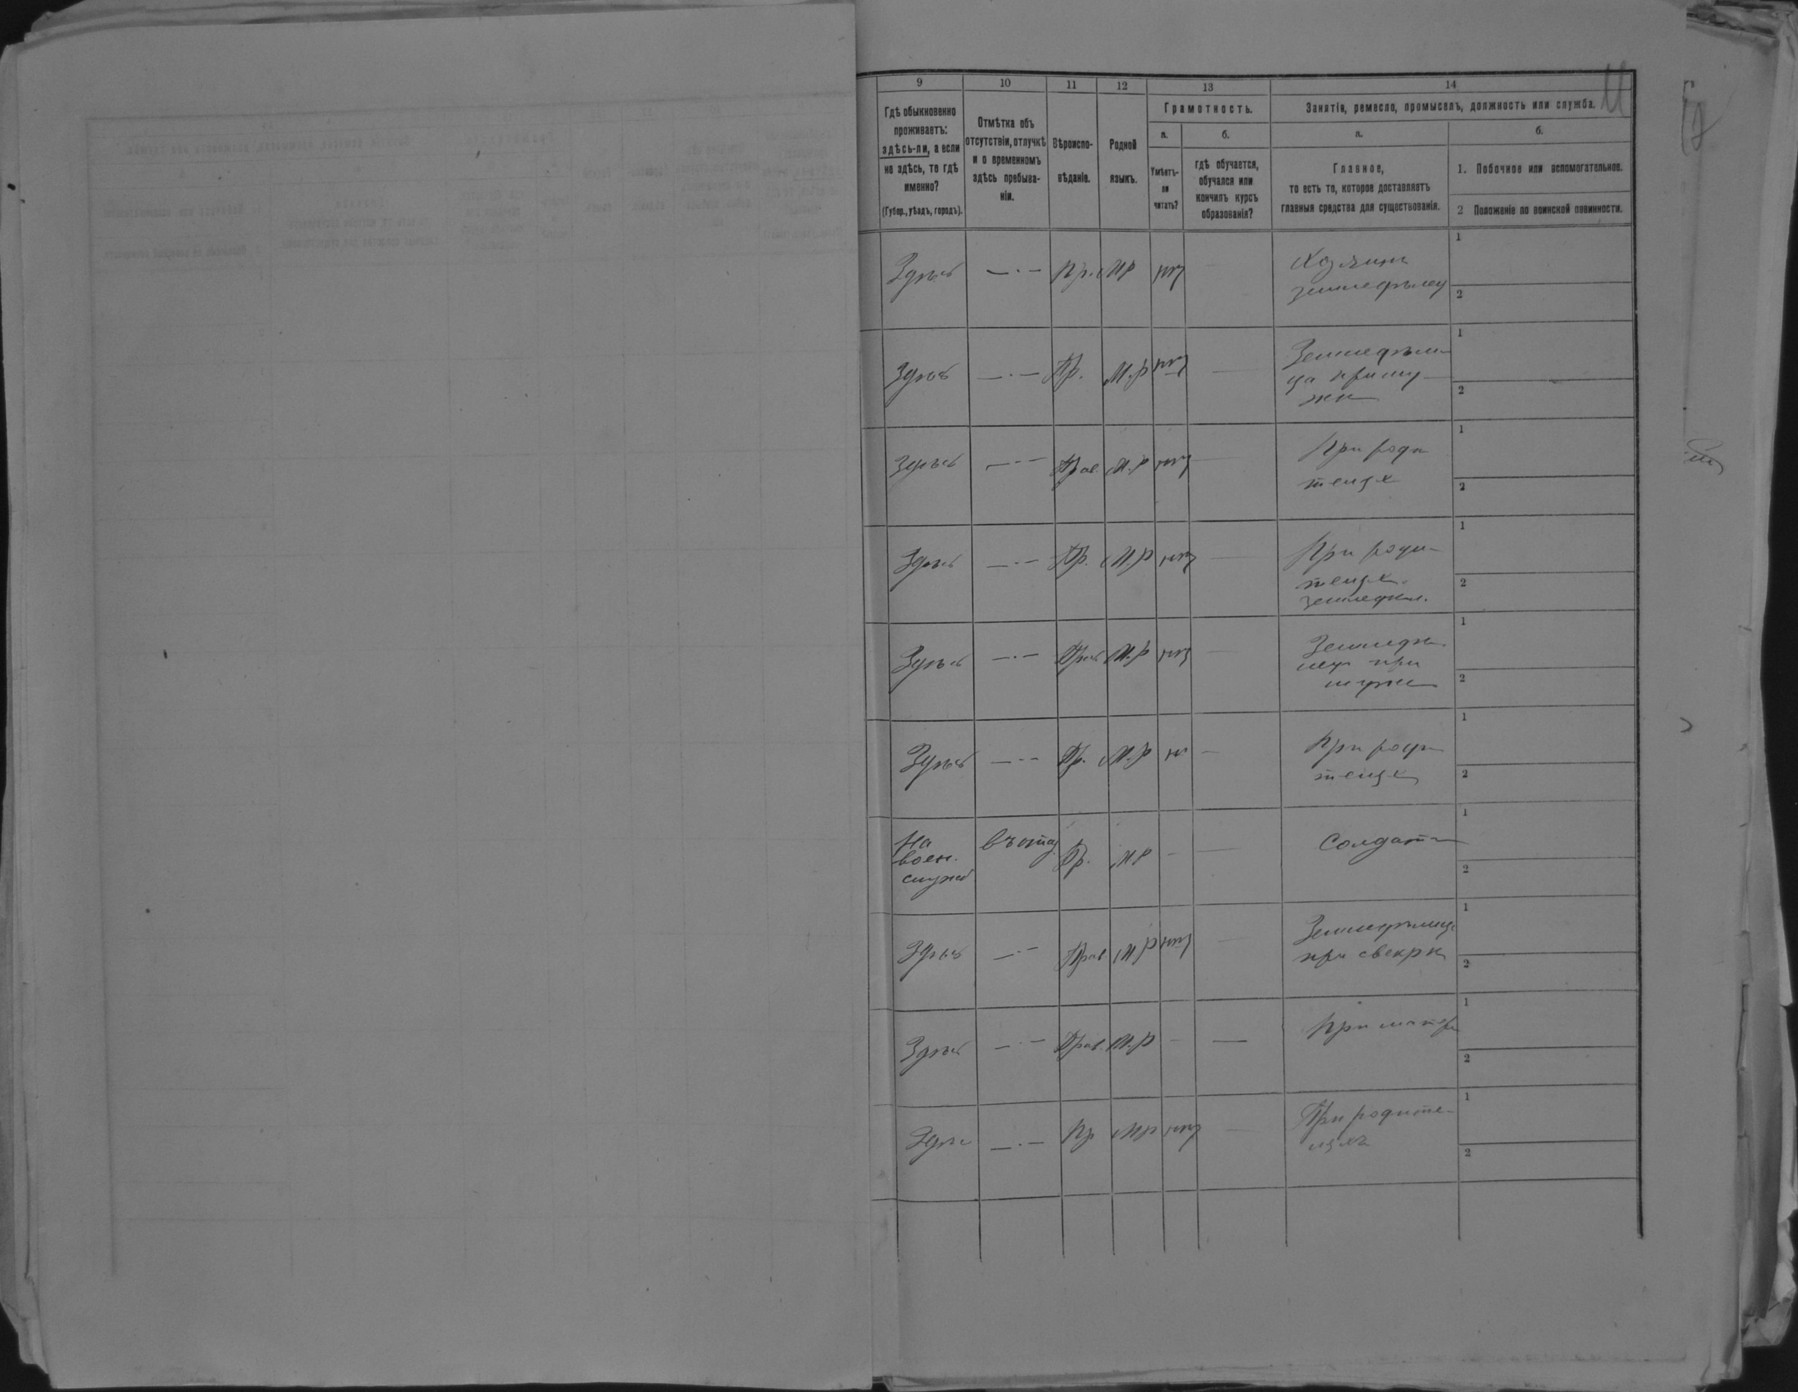 9 10 11 12 13 14
Гдѣ обыкновенно
проживаетъ:
здѣсь-ли, а если
не здѣсь, то гдѣ
именно?
(Губер., уѣздъ, городъ).
Отмѣтка объ
отсутствіи, отлучкѣ
и о временномъ
здѣсь пребыва-
ніи.
Вѣроиспо-
вѣданіе.
Родной
языкъ.
Грамотность.
а.
Умѣетъ-
ли
читать?
б.
гдѣ обучается,
обучался или
кончилъ курсъ
образованія?
Занятія, ремесло, промыселъ, должность или служба.
а.
Главное,
то есть то, которое доставляетъ
главныя средства для существованія.
б.
1. Побочное или вспомогательное.
2 Положеніе по воинской повинности.
Здѣсь — · — Пр. МР нѣт
Хозяинъ
земледѣлец
1
2
Здѣсь — · — Пр. М.р нѣт —
Земледѣли-
ца при му-
жѣ
1
2
Здѣсь — · — Прав М.р нѣт —
При роди
телѣ
1
2
Здѣсь — · — Пр. М.р нѣт —
При роди-
телѣ.
земледѣл.
1
2
Здѣсь — · — Прав М.р нѣт —
Земледѣ
при
мужѣ
1
2
Здѣсь — · — Пр. М.р —
При роди
телѣ
1
2
На
воен.
служб
Въ отл.
Пр. МР - —
Солдатъ
1
2
Здѣсь — · — Прав МР нѣт —
Земледѣлица
при свекрѣ
1
2
Здѣсь — · — Прав. М.р - —
При матери
1
2
Здѣс — · — Пр МР нѣт —
При родите-
ляхъ
1
2